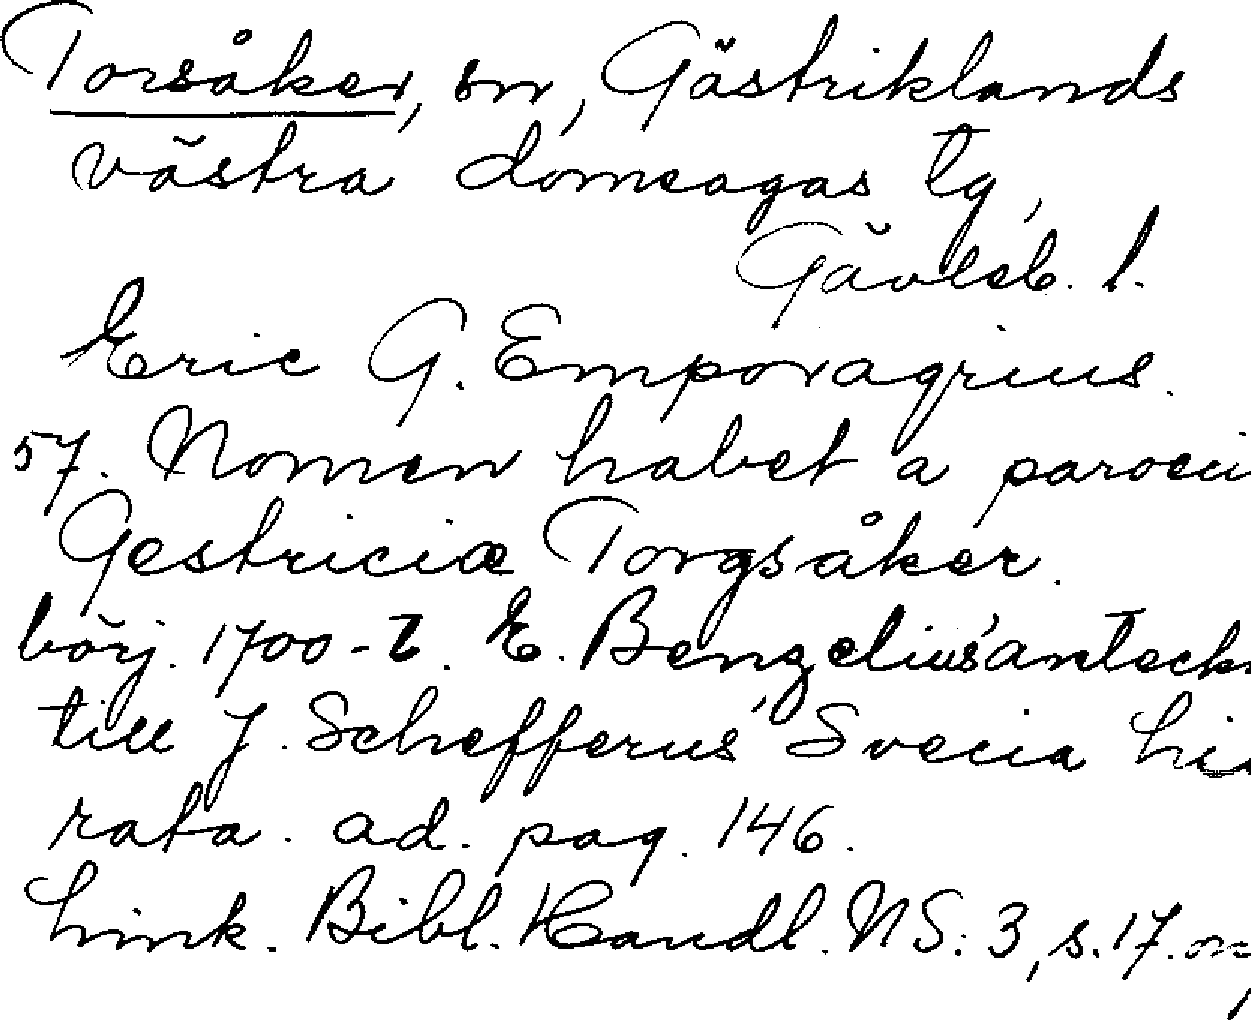 Torsåker, sn, Gästriklands
västra domsagas tg,
Gävleb. l.
Eric G. Emporagrius.
57. Nomen habet a paroeci
Gestriciæ Torgsåker.
börj. 1700-t. E. Benzelius' anteckn
till J. Schefferus' Svecia lit
rata. ad. pag. 146.
Link. Bibl. Handl. NS: 3, s. 17.